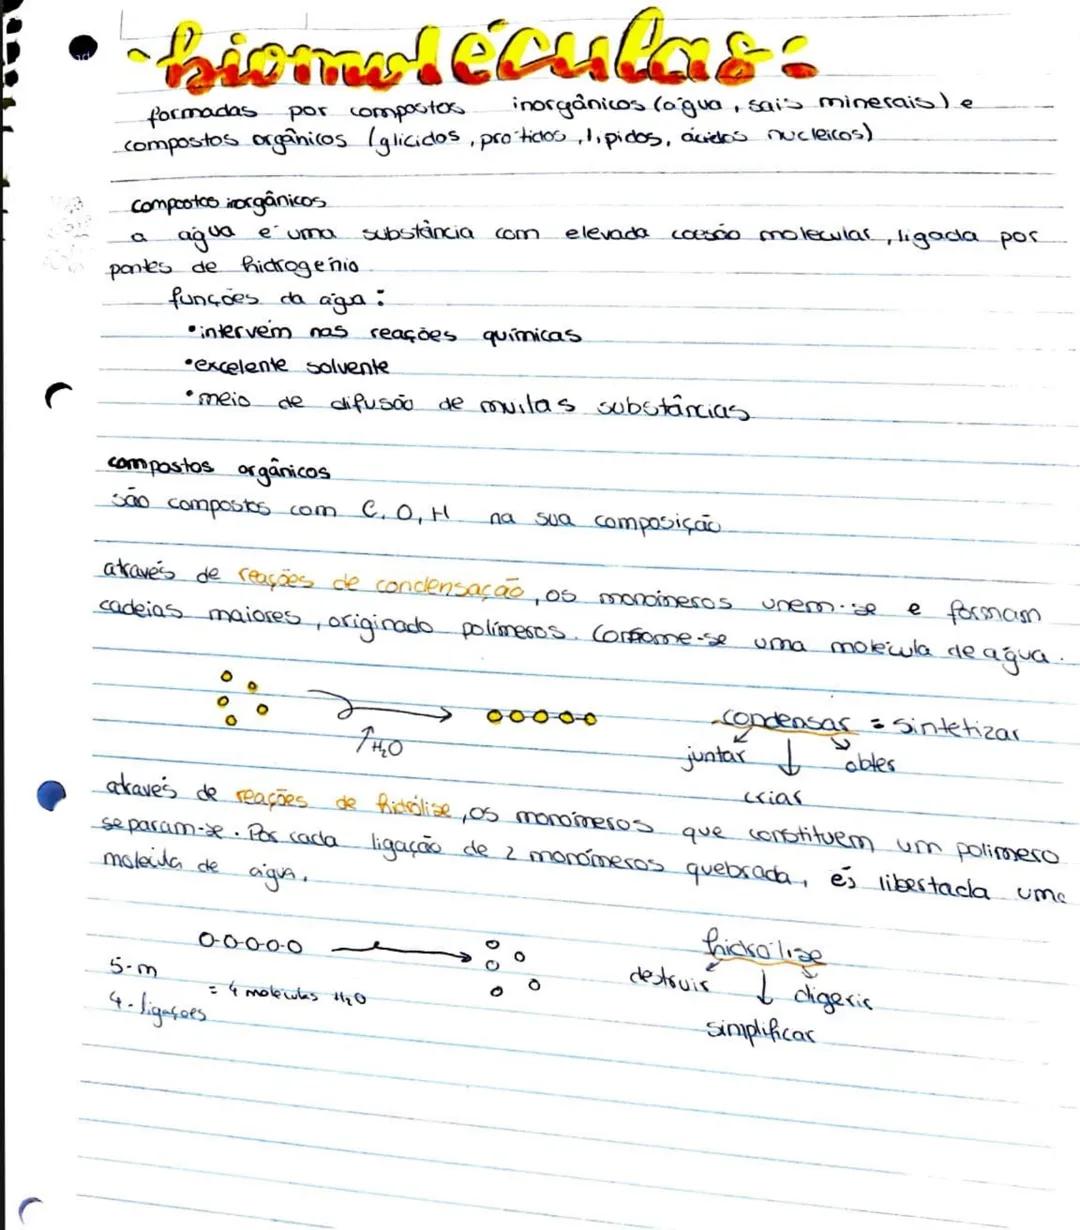 ·biomoléculas:
formadas por compostos inorgânicos (água, sais minerais) e
compostos orgânicos (glícidos, prótidos, lípidos, ácidos nucleicos)
compostos inorgânicos
a água é uma substância com elevada coesão molecular, ligada por
pontes de hidrogénio
funções da água:
•intervém nas reações químicas
•excelente solvente
•meio de difusão de muitas substâncias
compostos orgânicos
são compostos com C, O, H na sua composição
através de reações de condensação, os monómeros unem-se e formam
cadeias maiores, originado polímeros. Conforme-se uma molécula de água.
H₂O
condensar = sintetizar
juntar
obter
criar
através de reações de hidrólise, os monómeros que constituem um polímero
separam-se. Por cada ligação de 2 monómeros quebrada, és libertada uma
molécula de água.
O-O-O-O-O
5-m
4-ligações
= 4 moléculas H₂O
hidrólise
destruir
digerir
simplificar